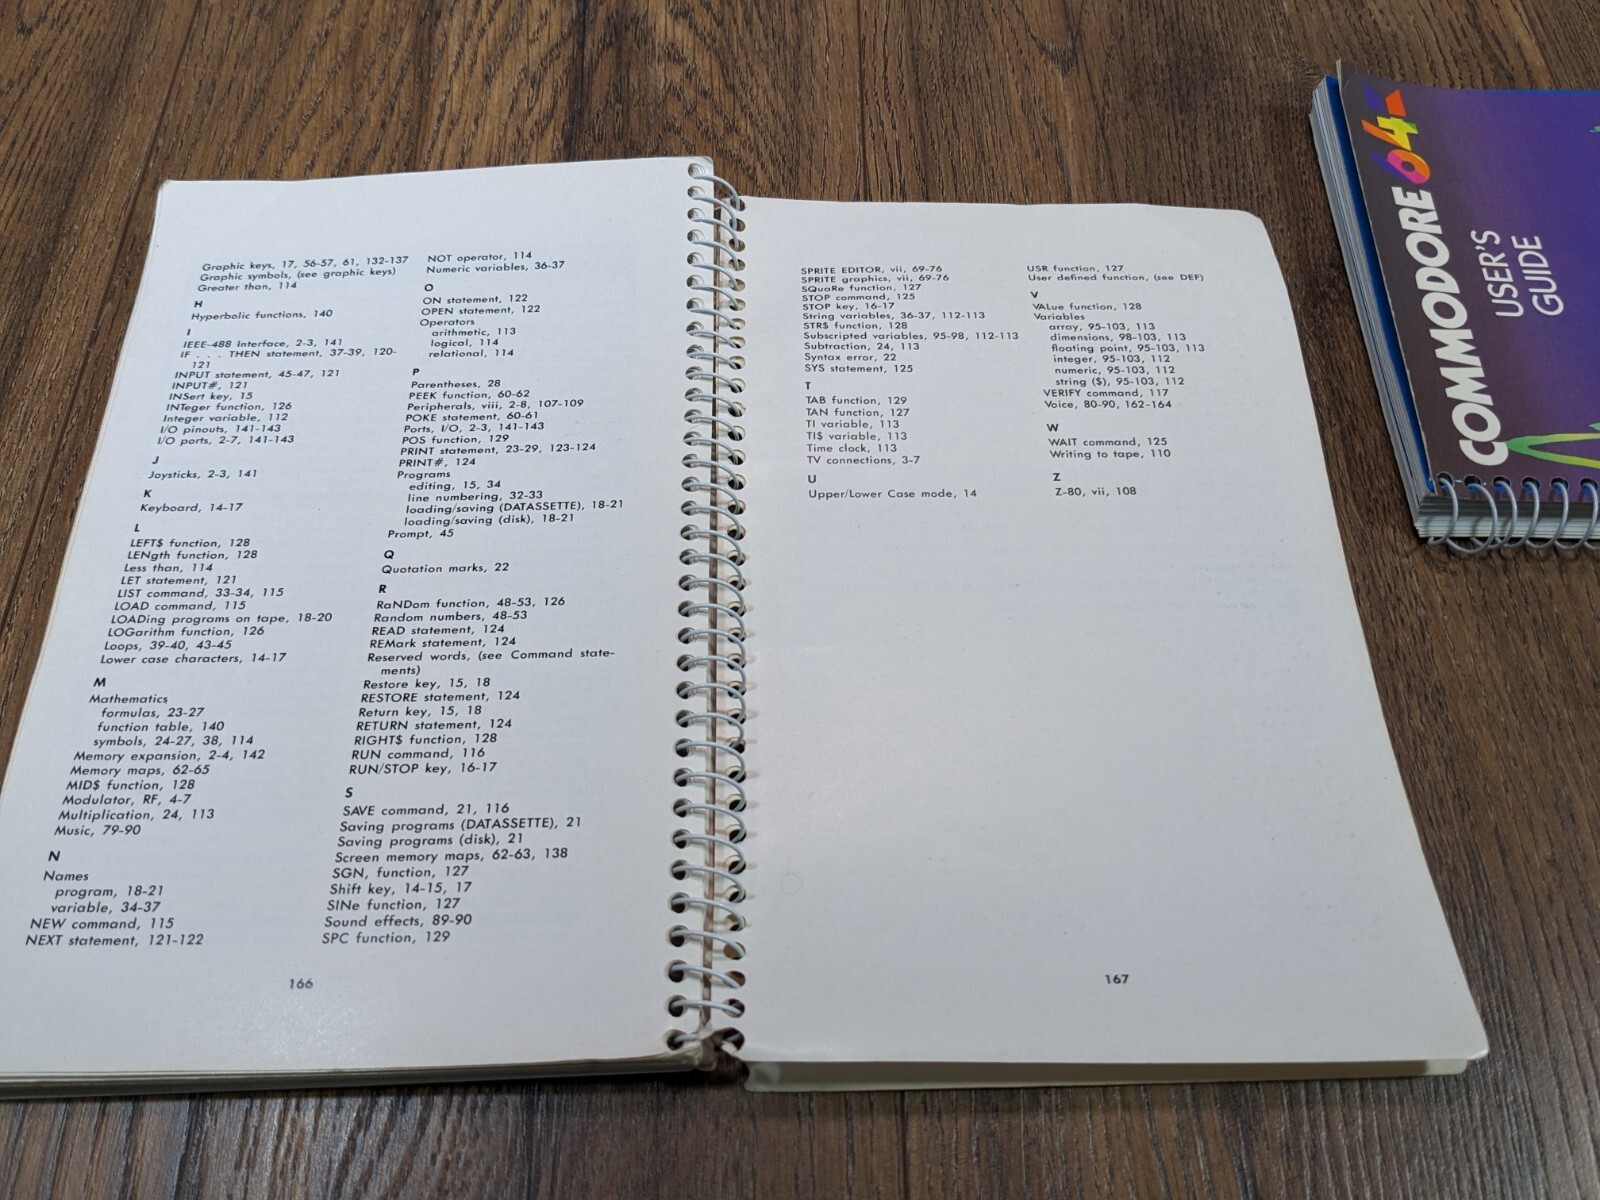 Graphic keys, 17, 56-57, 61, 132-137
Graphic symbols, (see graphic keys)
Greater than, 114
H
Hyperbolic functions, 140
I
IEEE-488 Interface, 2-3, 141
IF . . . THEN statement, 37-39, 120-
121
INPUT statement, 45-47, 121
INPUT#, 121
INSert key, 15
INTeger function, 126
Integer variable, 112
I/O pinouts, 141-143
I/O ports, 2-7, 141-143
J
Joysticks, 2-3, 141
K
Keyboard, 14-17
L
LEFT$ function, 128
LENgth function, 128
Less than, 114
LET statement, 121
LIST command, 33-34, 115
LOAD command, 115
LOADing programs on tape, 18-20
LOGarithm function, 126
Loops, 39-40, 43-45
Lower case characters, 14-17
M
Mathematics
formulas, 23-27
function table, 140
symbols, 24-27, 38, 114
Memory expansion, 2-4, 142
Memory maps, 62-65
MID$ function, 128
Modulator, RF, 4-7
Multiplication, 24, 113
Music, 79-90
N
Names
program, 18-21
variable, 34-37
NEW command, 115
NEXT statement, 121-122
NOT operator, 114
Numeric variables, 36-37
O
ON statement, 122
OPEN statement, 122
Operators
arithmetic, 113
logical, 114
relational, 114
P
Parentheses, 28
PEEK function, 60-62
Peripherals, viii, 2-8, 107-109
POKE statement, 60-61
Ports, I/O, 2-3, 141-143
POS function, 129
PRINT statement, 23-29, 123-124
PRINT#, 124
Programs
editing, 15, 34
line numbering, 32-33
loading/saving (DATASSETTE), 18-21
loading/saving (disk), 18-21
Prompt, 45
Q
Quotation marks, 22
R
RaNDom function, 48-53, 126
Random numbers, 48-53
READ statement, 124
REMark statement, 124
Reserved words, (see Command state-
ments)
Restore key, 15, 18
RESTORE statement, 124
Return key, 15, 18
RETURN statement, 124
RIGHT$ function, 128
RUN command, 116
RUN/STOP key, 16-17
S
SAVE command, 21, 116
Saving programs (DATASSETTE), 21
Saving programs (disk), 21
Screen memory maps, 62-63, 138
SGN, function, 127
Shift key, 14-15, 17
SINe function, 127
Sound effects, 89-90
SPC function, 129
166
SPRITE EDITOR, vii, 69-76
SPRITE graphics, vii, 69-76
SQuaRe function, 127
STOP command, 125
STOP key, 16-17
String variables, 36-37, 112-113
STR$ function, 128
Subscripted variables, 95-98, 112-113
Subtraction, 24, 113
Syntax error, 22
SYS statement, 125
T
TAB function, 129
TAN function, 127
TI variable, 113
TI$ variable, 113
Time clock, 113
TV connections, 3-7
U
Upper/Lower Case mode, 14
USR function, 127
User defined function, (see DEF)
V
VALue function, 128
Variables
array, 95-103, 113
dimensions, 98-103, 113
floating point, 95-103, 113
integer, 95-103, 112
numeric, 95-103, 112
string ($), 95-103, 112
VERIFY command, 117
Voice, 80-90, 162-164
W
WAIT command, 125
Writing to tape, 110
Z
Z-80, vii, 108
167
COMMODORE 64
USER'S
GUIDE